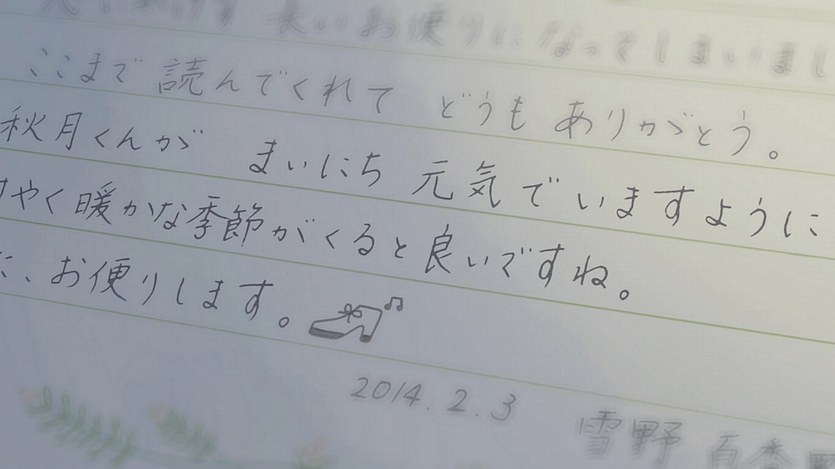 長いお便りになってしまいまし
ここまで読んでくれて どうもありがとう。
秋月くんが まいにち 元気でいますように
はやく暖かな季節がくると良いですね。
お便りします。
2014. 2. 3
雪野 百香里